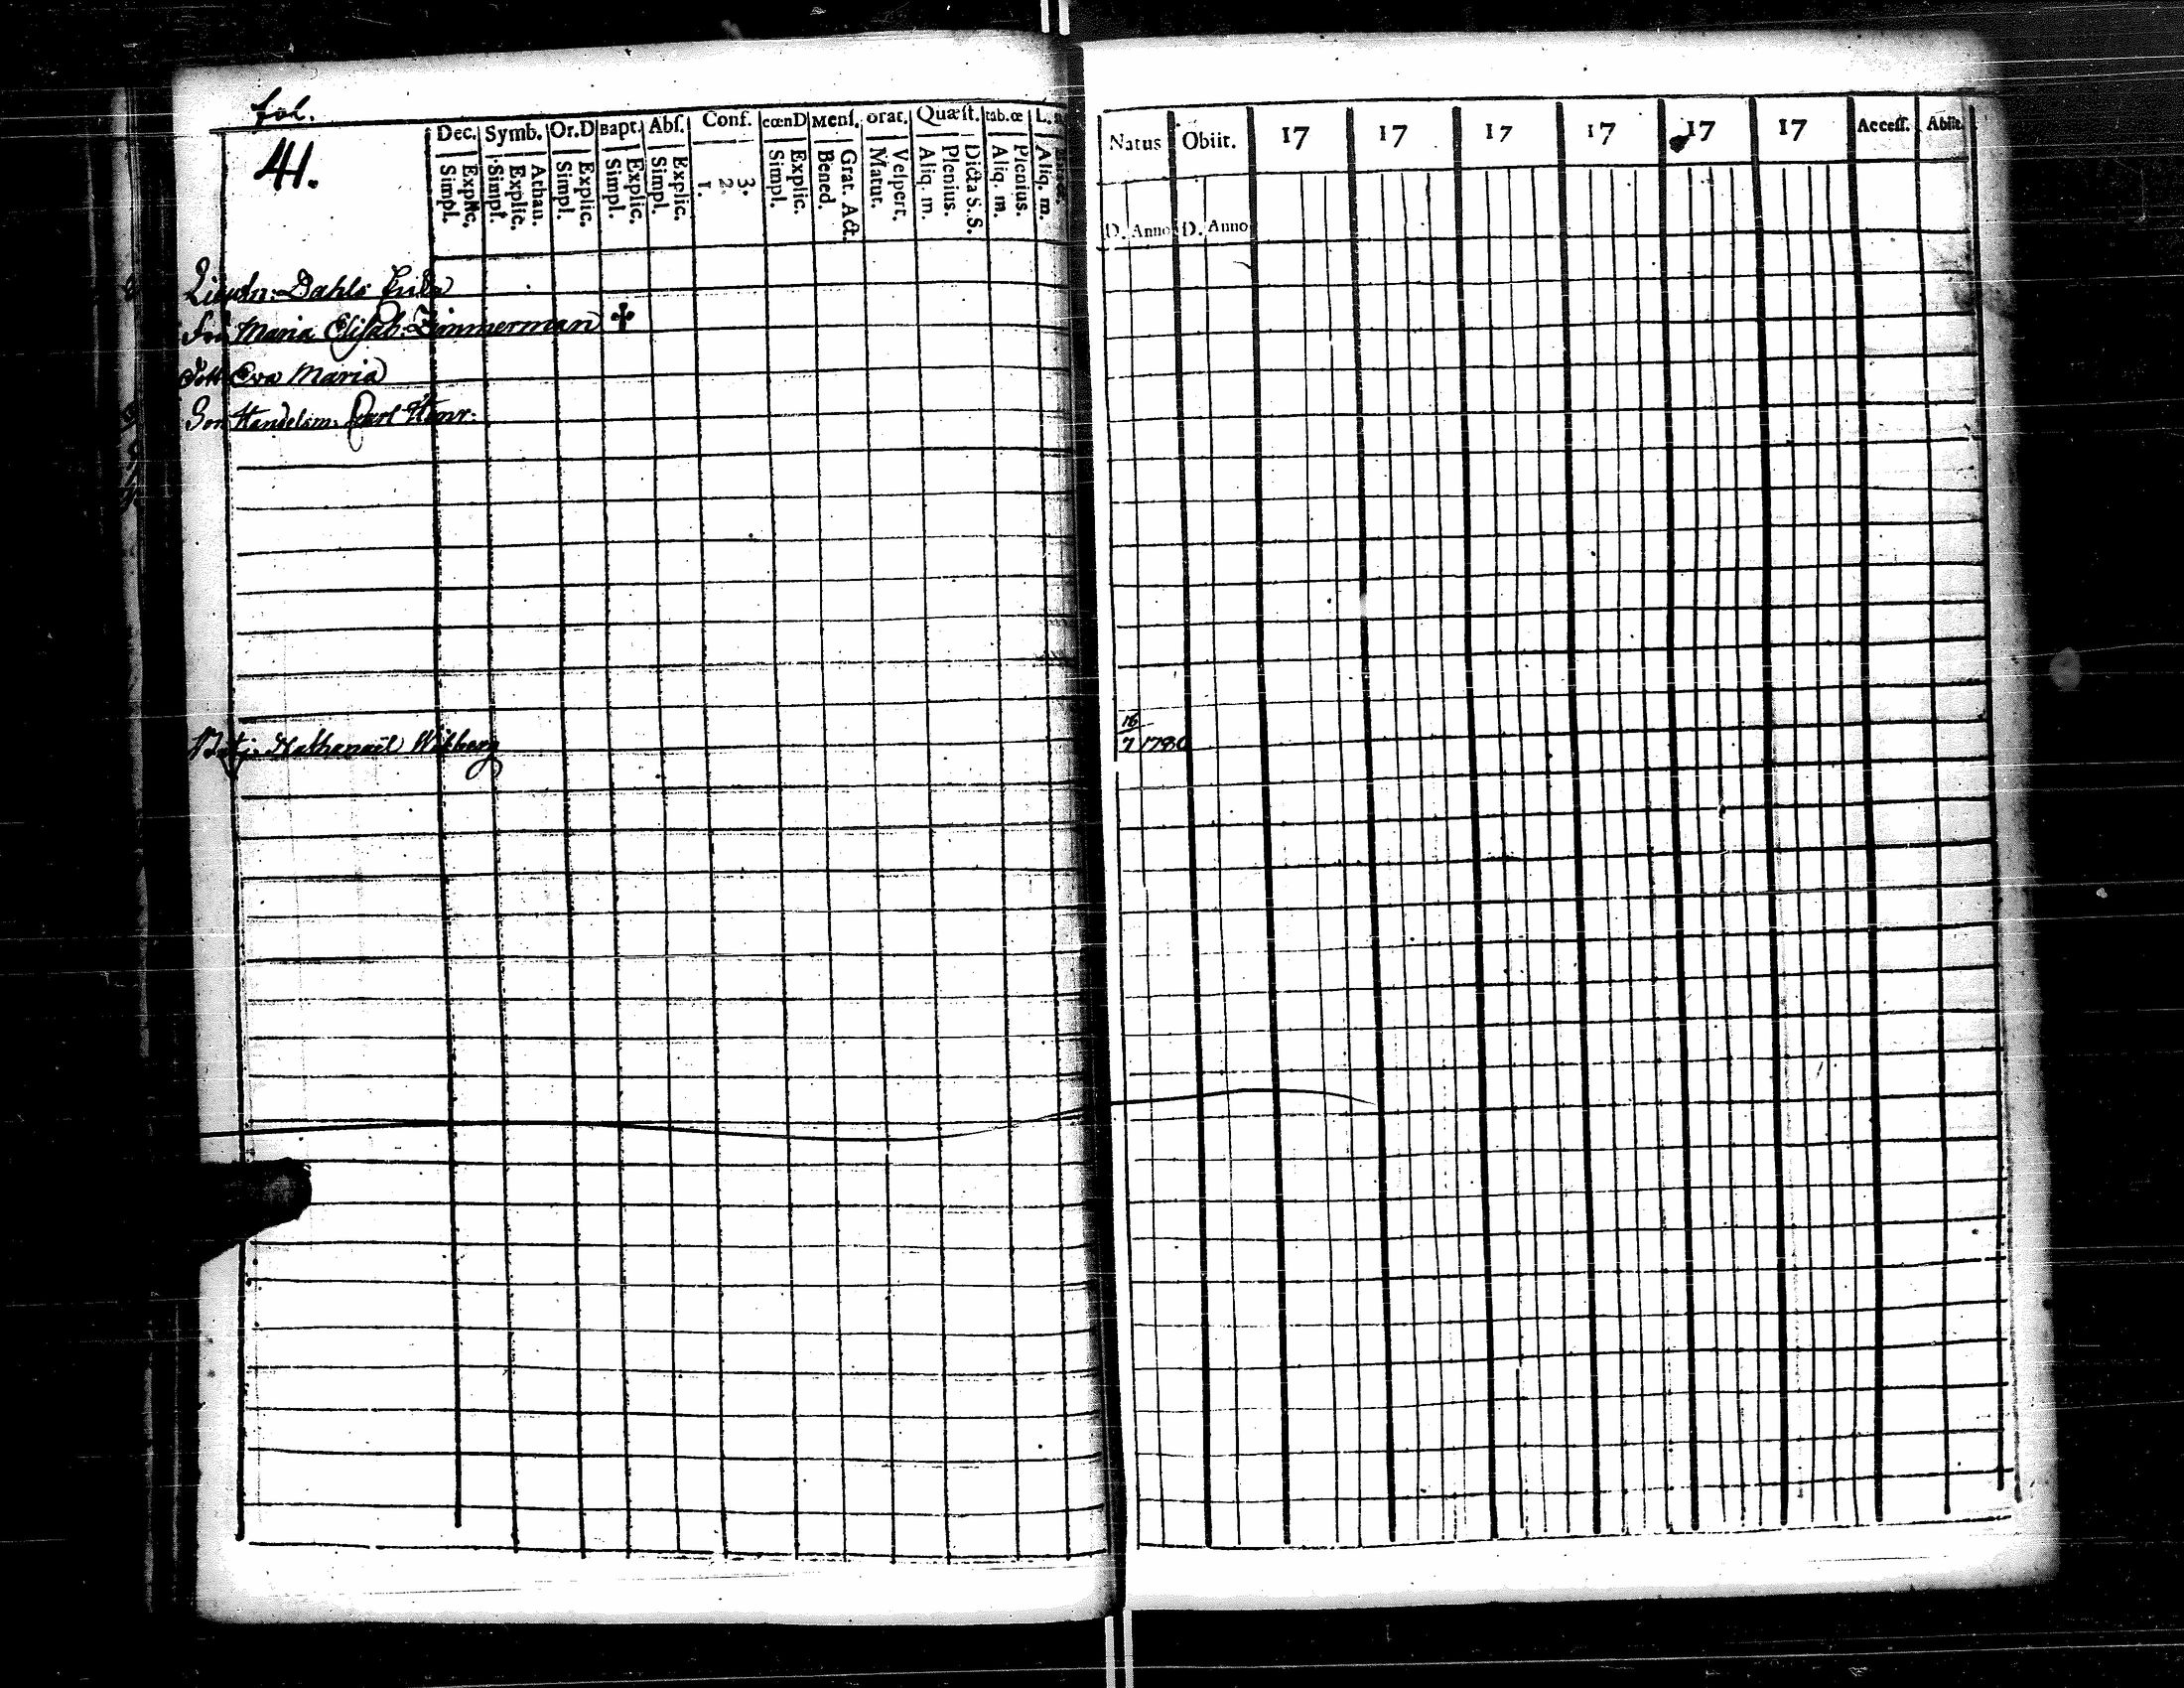 fol.
41.
Dec. Symb. Or.D Bapt. Abſ. Conf. cœnD Menſ. orat. Quæſt. tab.œ L.
Explic. Simpl. Athan. Explic. Simpl. Explic. Simpl. Explic. Simpl. Explic. Simpl. 3. 2. 1. Explic. Simpl. Grat. Act. Bened. Veſpert. Matut. Dicta S. S. Plenius. Aliq. m. Plenius. Aliq. m. Aliq. m.
Natus Obiit. 17 17 17 17 17 17 Acceſſ. Abiit.
D. Anno D. Anno
Lieutn: Dahls
Fru Maria Elisab: Zimmerman ✝
Dott Eva Maria
Son Handelsm. Carl Henr:
Nathanaël Wikberg
16
7 1780